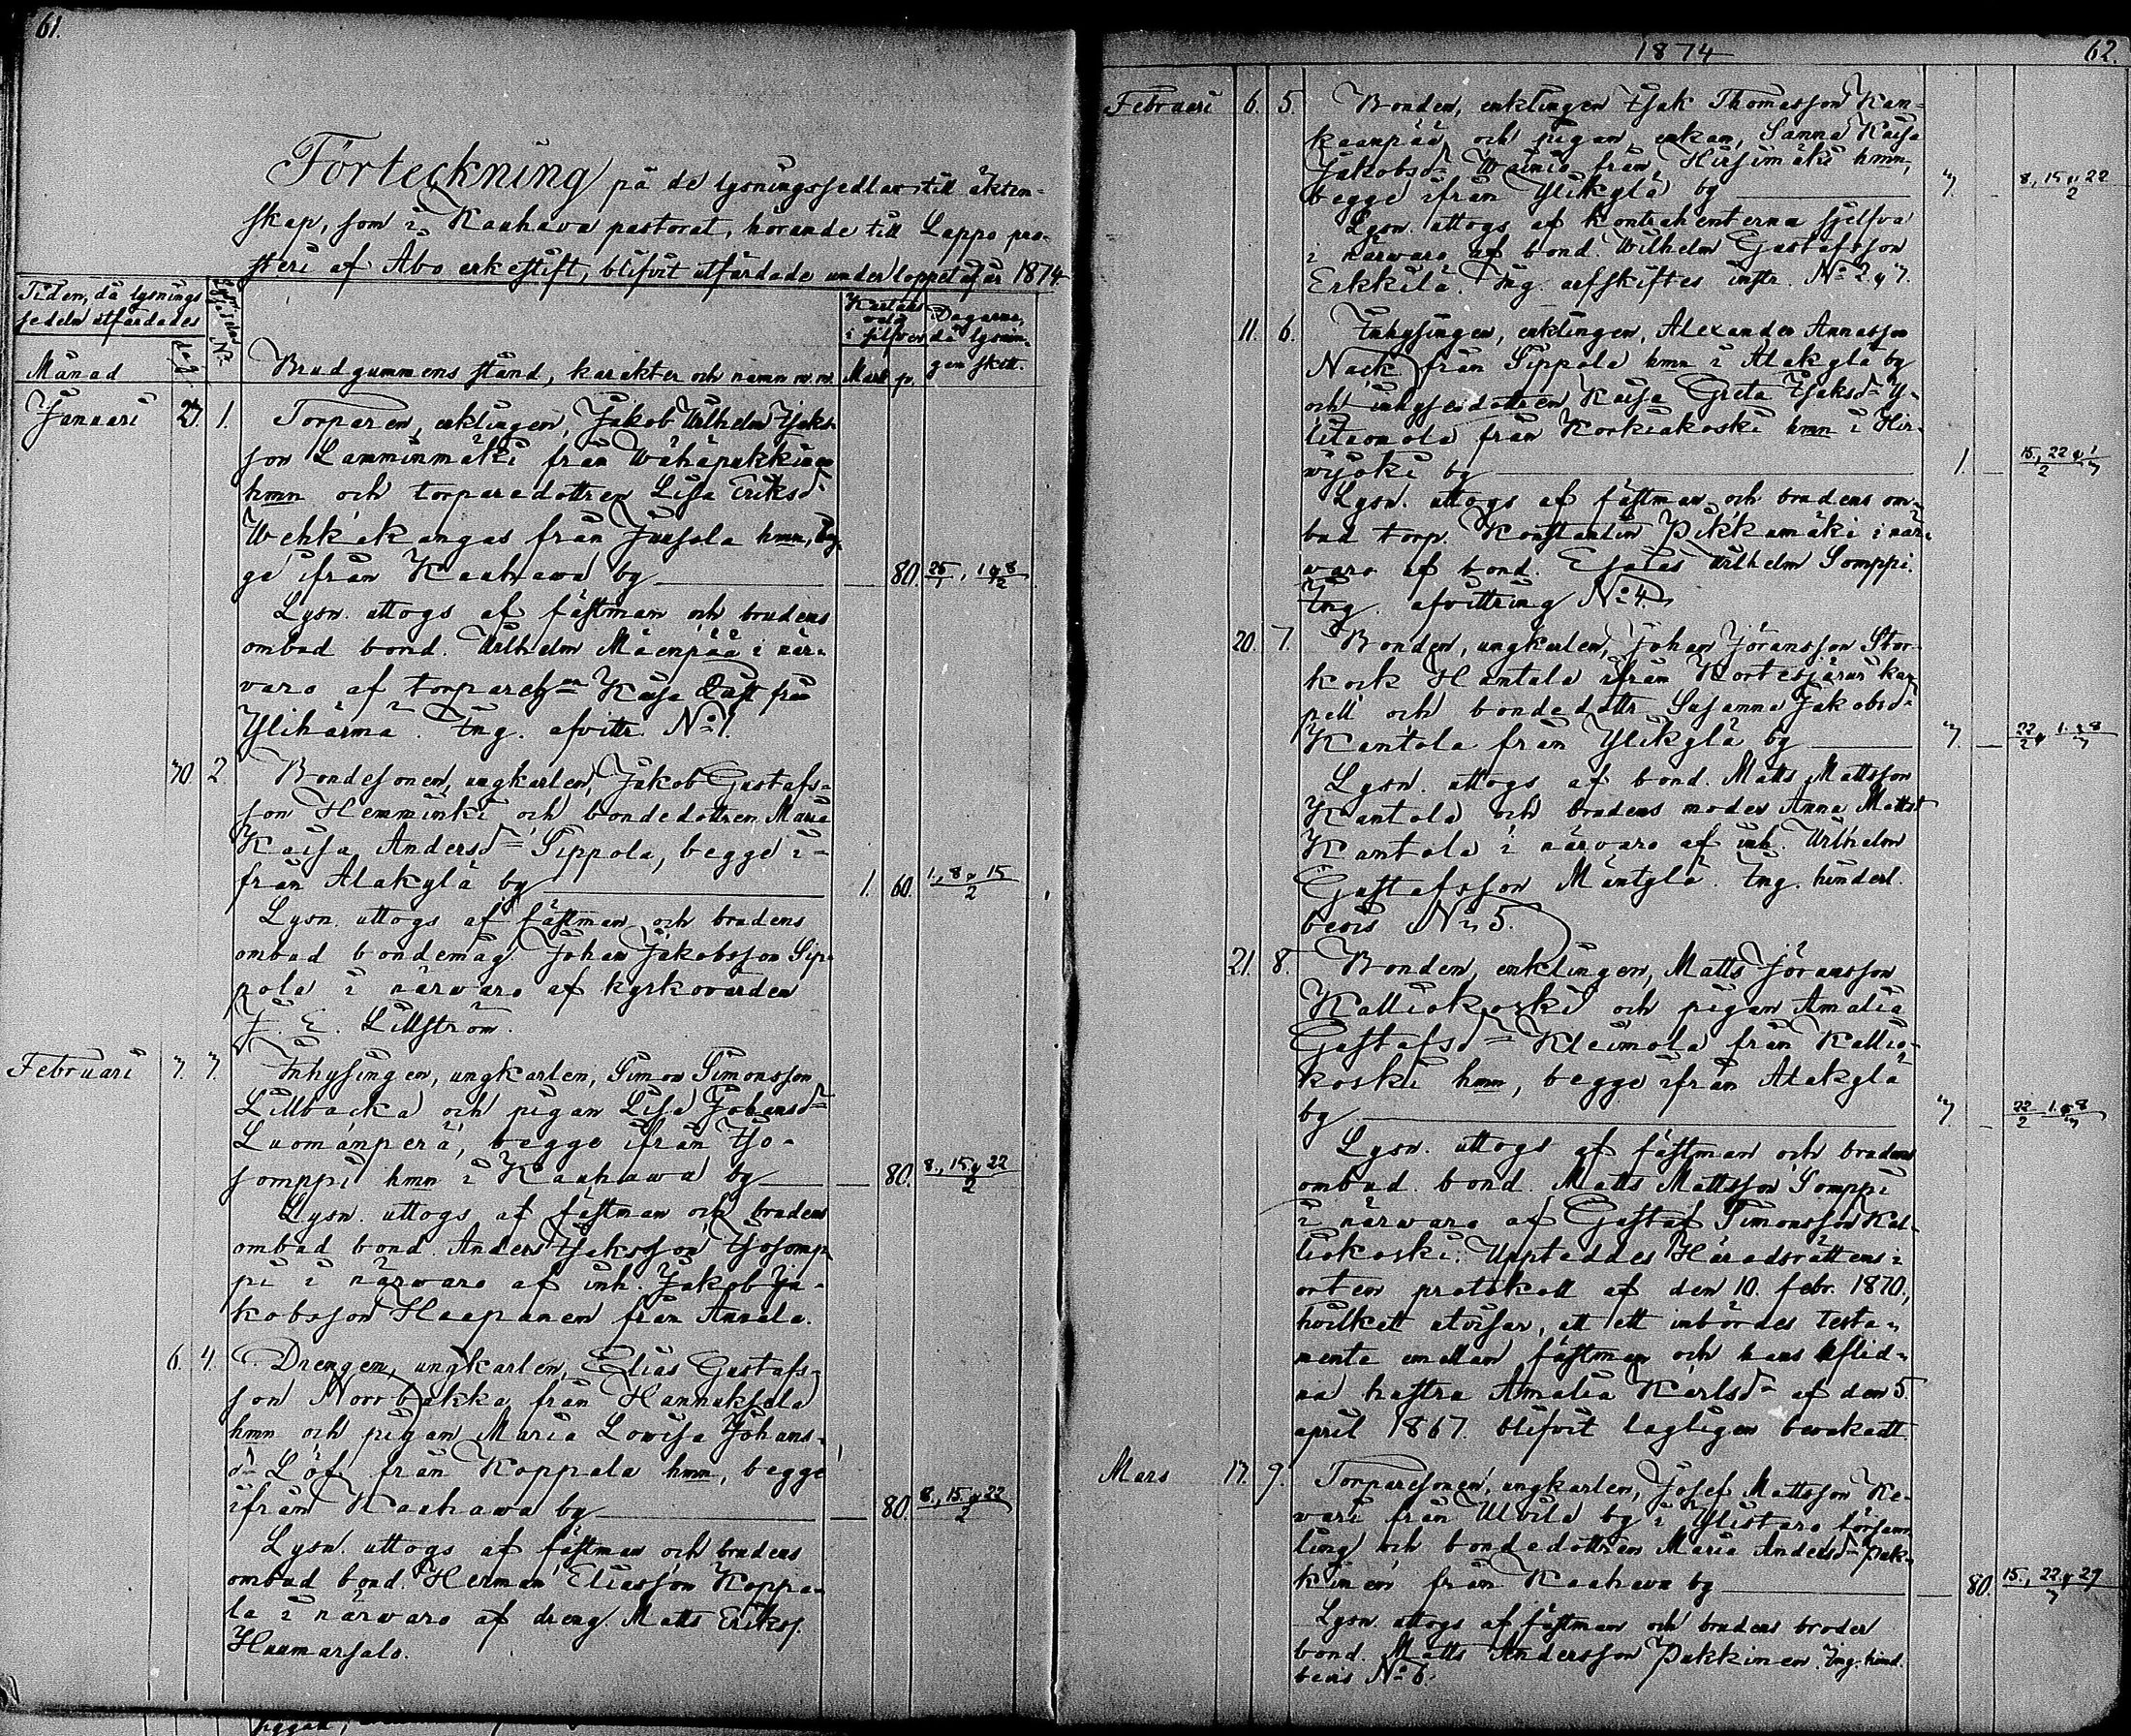 61.
Förteckning på de lysningssedlar till äkten-
skap, som i Kauhava pastorat, hörande till Lappo pro-
steri af Åbo erkestift, blifvit utfärdade under loppet af år 1874.
Tiden, då lysnings
sedeln utfärdades
Månad
dag
No
Brudgummens stånd, karakter och namn m.m.
i silfver
Mark p.
Dagarne,
då lysnin-
gen skett.
Januari 27. 1. Torparen, enklingen, Jakob Wilhelm Isaks-
son Lamminmäki från Wähäpukkinen
hmn och torparedottren Lisa Eriksdr
Wehkakangas från Juusola hmn, beg-
ge ifrån Kauhawa by — 80. 25/1, 1 & 8/2
Lysn. uttogs af fästman och brudens
ombud bond. Wilhelm Mäenpää i när-
varo af Kaisa Qvist från
Ylihärmä. Ing. afvittr. No 1.
30. 2. Bondesonen, ungkarlen, Jakob Gustafs-
son Hemminki och bondedottren Maria
Kaisa Andersdr Sippola, begge i-
från Alakylä by 1. 60. 1, 8 & 15/2
Lysn. uttogs af fästman och brudens
ombud bondemåg Johan Jakobsson Sip-
pola i närwaro af kyrkovärden
J. E. Lillström.
Februari 3. 3. Inhysingen, ungkarlen, Simon Simonsson
Lillbacka och pigan Lisa Johansdr
Luomanperä, begge ifrån Iso-
somppi hmn i Kauhawa by — 80. 8, 15 & 22/2
Lysn. uttogs af fästman och brudens
ombud bond. Anders Isaksson Isosomp-
pi i närwaro af inh. Jakob Ja-
kobsson Haapanen från Annala.
6. 4. Drengen, ungkarlen, Elias Gustafs-
son Norrbakka från Hannuksela
hmn och pigan Maria Lowisa Johans-
dr Löf från Koppala hmn, begge
ifrån Kauhawa by — 80. 8, 15 & 22/2
Lysn. uttogs af fästman och brudens
ombud bond. Herman Eliasson Koppa-
la i närwaro af dreng. Matts Erikss.
Huumarsalo.
1874
62.
Februari 6. 5. Bonden, enklingen Isak Thomasson Kan-
kaanpää och pigan, enkan, Sanna Kaisa
Jakobsdr Wainio från Hirsimäki hmn,
begge ifrån Ylikylä by 3. 8, 15 & 22/2
Lysn. uttogs af kontrahenterna sjelfva
i närwaro af bond. Wilhelm Gustafsson
Erkkilä. Ing. arfskiftes instr. No 2 & 3.
11. 6. Inhysingen, enklingen, Alexander Annasson
Nack från Sippola hmn i Alakylä by
och inhysesdottren Kaisa Greta Isaksdr Y-
litiomola från Korkiakoski hmn i Hir-
wijoki by 1. — 15, 22/2 & 1/3
Lysn. uttogs af fästman och brudens om-
bud torp. Konstantin Pikkumäki i när-
varo af bond. Esaias Wilhelm Somppi.
Ing. afvittring No 4.
20. 7. Bonden, ungkarlen, Johan Jöransson Stor-
kock Hantala ifrån Kortesjärvi kap-
pell och bondedottr. Susanna Jakobsdr
Kantola från Ylikylä by 3. — 22/2, 1 & 8/3
Lysn. uttogs af bond. Matts Mattsson
Kantola och brudens moder Anna Mattsd
Kantola i närvaro af inh. Wilhelm
Gustafsson Mäntylä. Ing. hinderl.
bevis No 5.
21. 8. Bonden, enklingen, Matts Jöransson
Kalliokoski och pigan Amalia
Gustafsdr Kleimola från Kallio-
koski hmn, begge ifrån Alakylä
by 3. — 22/2 1 & 8/3
Lysn. uttogs af fästman och brudens
ombud bond. Matts Mattsson Somppi
i närwaro af Gustaf Simonsson Kal-
liokoski. Uppteddes Häradsrättens i
orten protokoll af den 10. febr. 1870,
hvilkett utvisar, att ett inbördes testa-
mente emellan fästman och hans aflid-
na hustru Amalia Karlsdr af den 5.
april 1867. blifvit lagligen bevakadt.
Mars 13. 9. Torparesonen, ungkarlen, Josef Mattsson Ke-
vari från Ulvila by i Ylistaro försam-
ling och bondedottren Maria Andersdr Puk-
kinen från Kauhava by — 80. 15, 22 & 29/3
Lysn. uttogs af fästman och brudens broder
bond. Matts Andersson Pukkinen. Ing. hind.
bevis No 6.